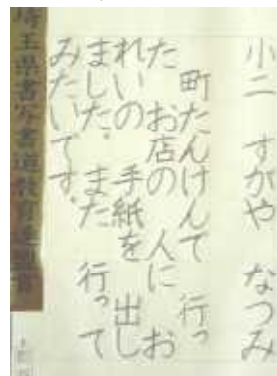 小二 すがや なつみ
町たんけんで 行っ
た お店の 人に お
れいの 手紙を 出し
ました。また 行って
みたいです。
埼玉県書写書道教育連盟賞